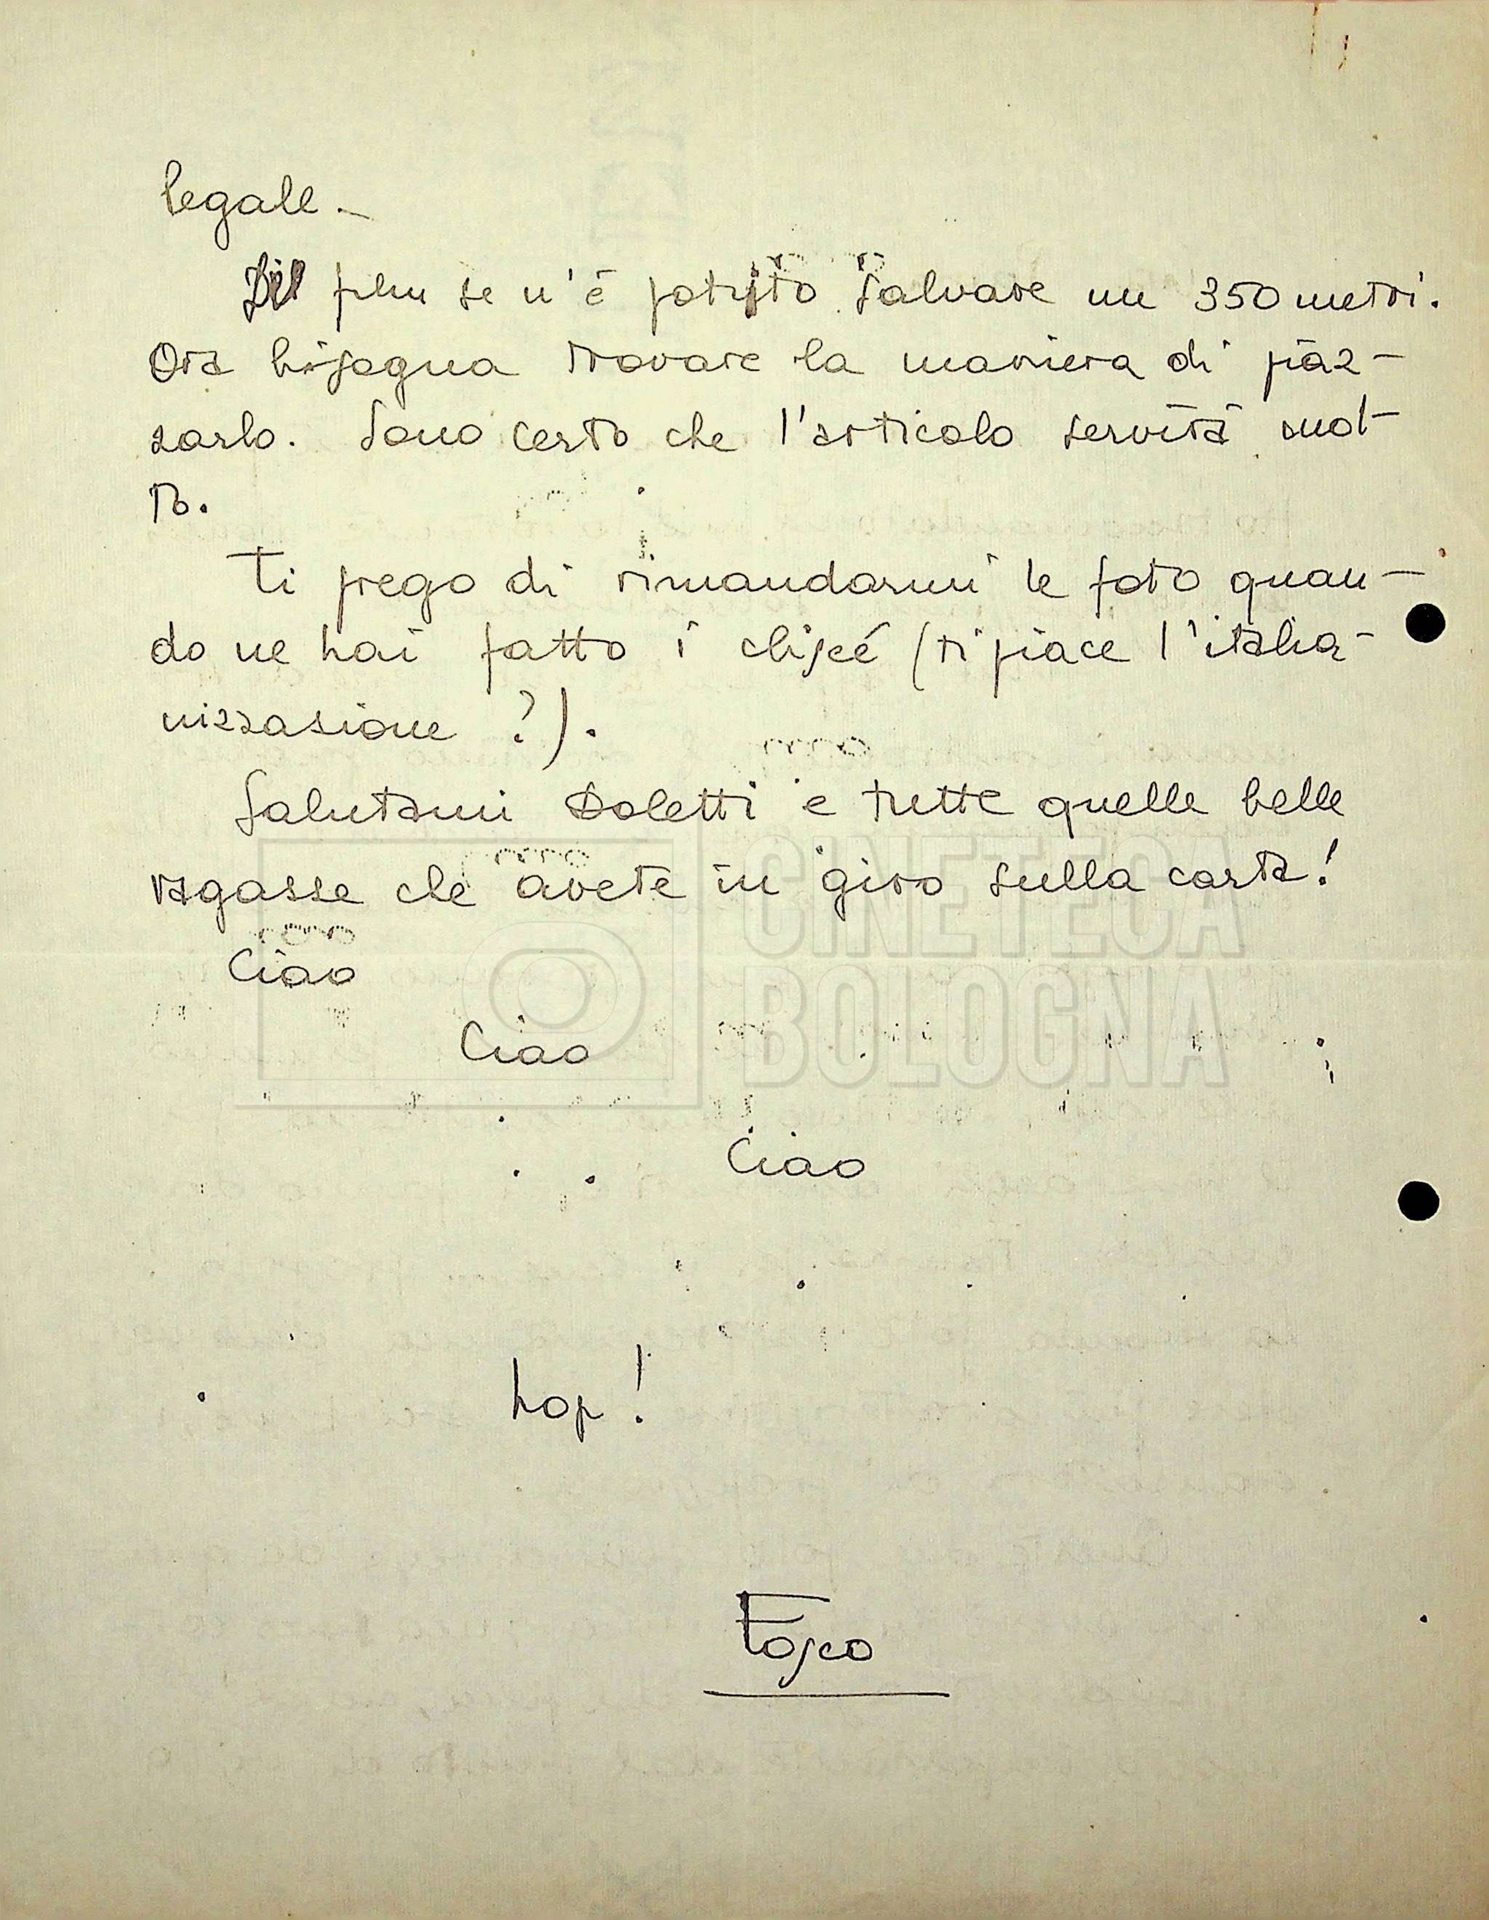 legale.–
Del film se n'è potuto salvare un 350 metri.
Ora bisogna trovare la maniera di piaz-
zarlo. Sono certo che l'articolo servirà mol-
to.
Ti prego di rimandarmi le foto quan-
do ne hai fatto i cliscé (ti piace l'italia-
nizzazione ?).
Salutami Doletti e tutte quelle belle
ragazze che avete in giro sulla carta!
Ciao
Ciao
Ciao
hop!
Fosco
CINETECA
BOLOGNA